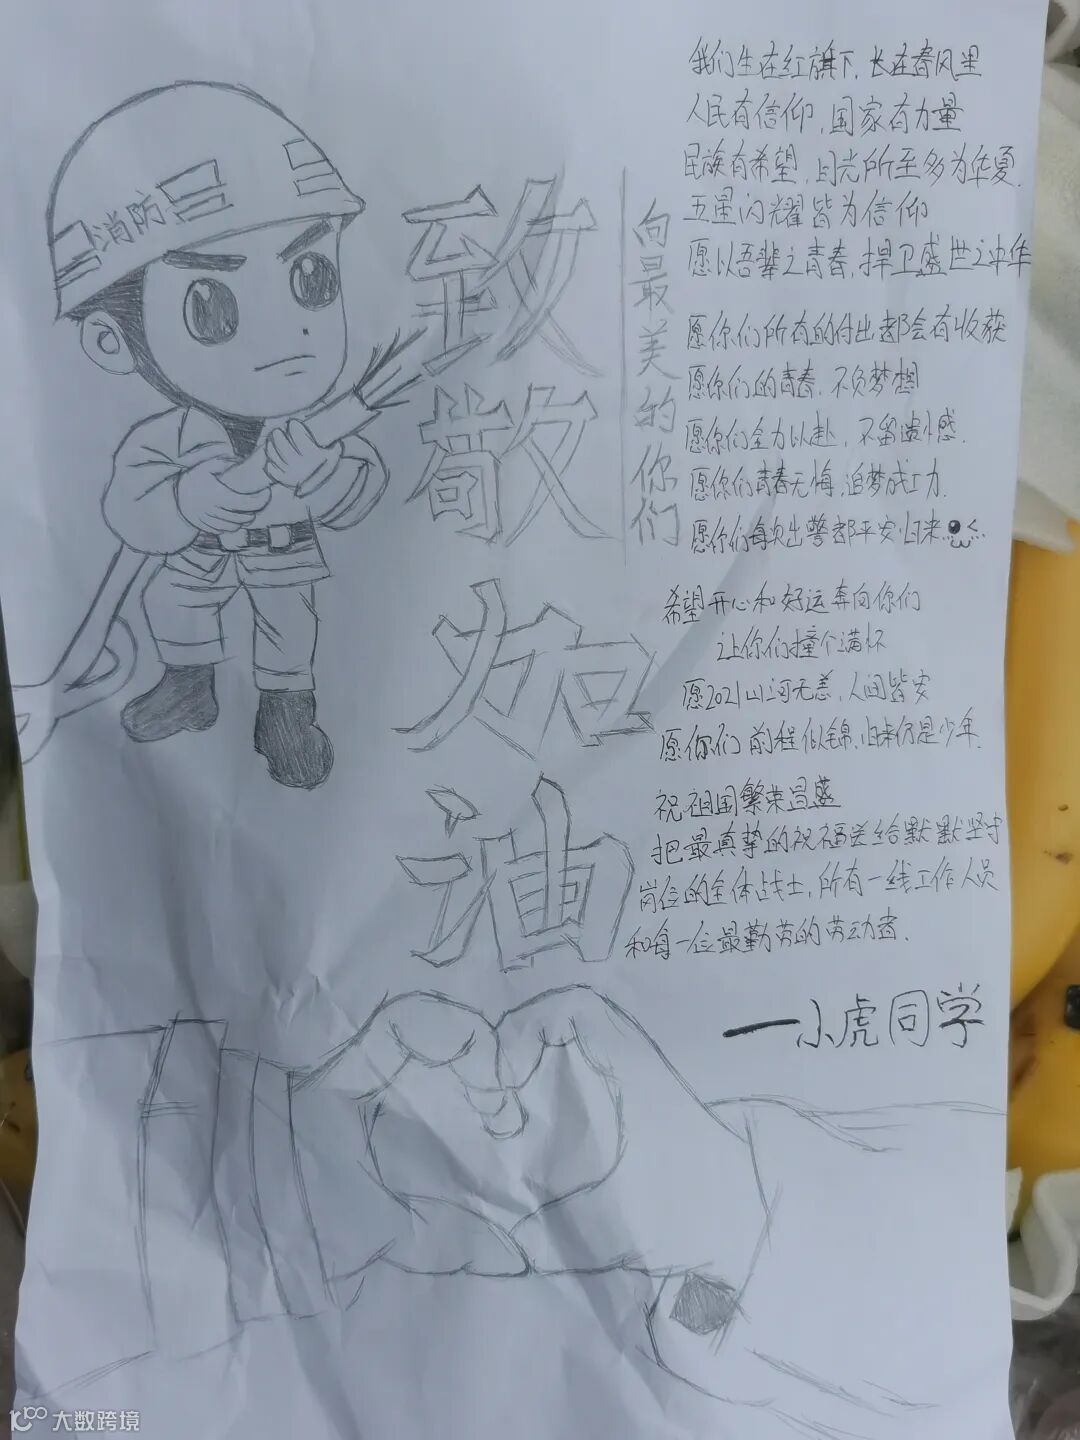 消防
致敬
加油
向最美的你们
我们生在红旗下，长在春风里
人民有信仰，国家有力量
民族有希望，目光所至多为华夏.
五星闪耀皆为信仰
愿以吾辈之青春，捍卫盛世之中华
愿你们所有的付出都会有收获
愿你们的青春，不负梦想
愿你们全力以赴，不留遗憾.
愿你们青春无悔，追梦成功.
愿你们每次出警都平安归来
希望开心和好运奔向你们
让你们撞个满怀
愿2021山河无恙，人间皆安
愿你们前程似锦，归来仍是少年.
祝祖国繁荣昌盛
把最真挚的祝福送给默默坚守
岗位的全体战士，所有一线工作人员
和每一位最勤劳的劳动者.
一小虎同学
大数跨境